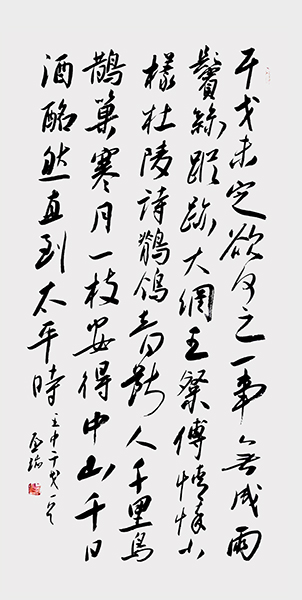 干戈未定欲何之一事無成兩
鬢絲蹤跡大綱王粲傳情懷小
樣杜陵詩鶺鴒音斷人千里烏
鵲巢寒月一枝安得中山千日
酒酩然直到太平時
王中干戈一首